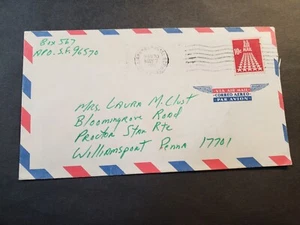 Box 567
APO. S.F. 96570
10c
U.S. AIR MAIL
CORREO AEREO
PAR AVION
Mrs Lavan M. Clust
Bloomingrove Road
Proctor Star Rte
Williamsport Penna 17701